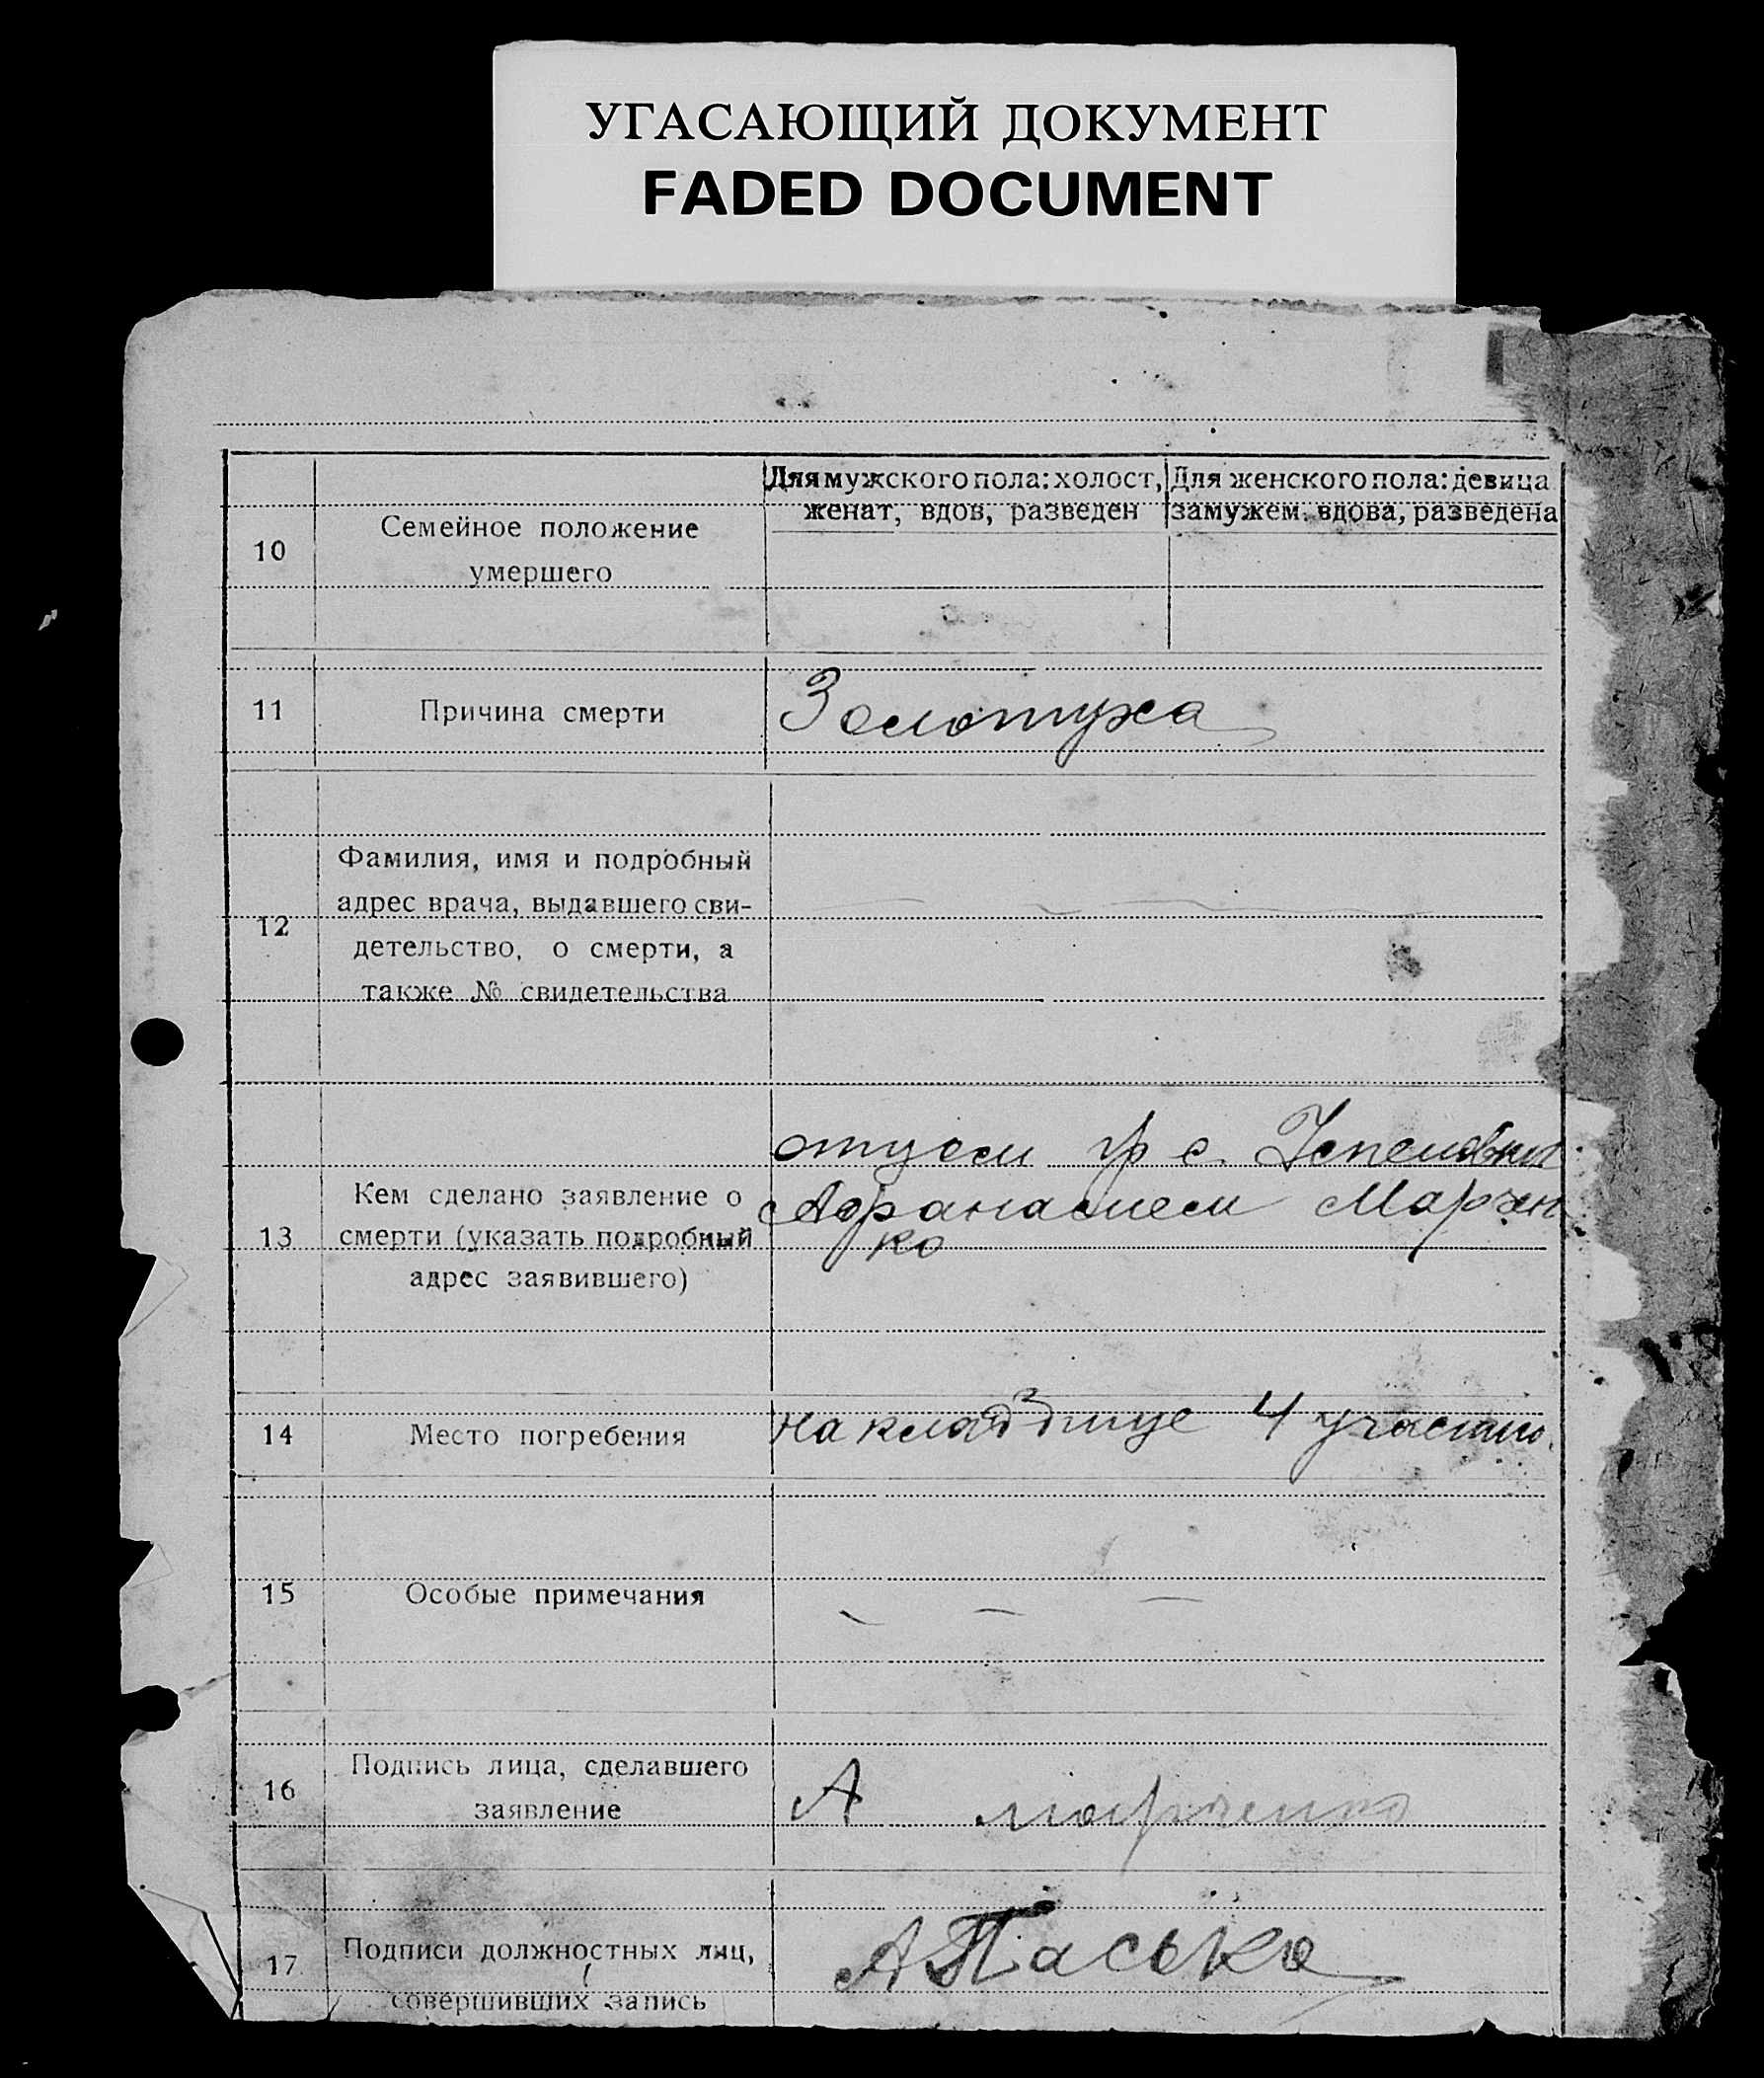 УГАСАЮЩИЙ ДОКУМЕНТ
FADED DOCUMENT
10
Семейное положение
умершего
Для мужского пола: холост,
женат, вдов, разведен
Для женского пола: девица
замужем, вдова, разведена
11
Причина смерти
Золотуха
12
Фамилия, имя и подробный
адрес врача, выдавшего сви-
детельство, о смерти, а
также № свидетельства
13
Кем сделано заявление о
смерти (указать подробный
адрес заявившего)
отцом гр с.
Афанасием Марчен
ко
14
Место погребения
на кладдпице 4
15
Особые примечания
16
Подпись лица, сделавшего
заявление
А марченко
17
Подписи должностных лиц,
совершивших запись
А Пасько